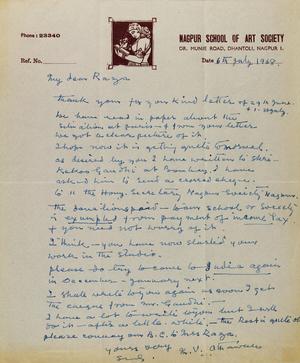 Phone: 23340
NAGPUR SCHOOL OF ART SOCIETY
DR. MUNJE ROAD, DHANTOLI, NAGPUR 1.
Ref. No.
Date 6th July 1968
My dear Raza
Thank you for your kind letter of 29th June
& 1st July
We have read in paper about the
situation at Paris & from your letter
we got a clear picture of it.
I hope now it is getting quite to normal.
As desired by you I have written to Shri
Gandhi at Bombay, I have
asked him to send a crossed cheque
to "The Hony. Secretary Nagpur Society" Nagpur.
The to our school or Society
is exempted from payment of income tax
& you need not worry of it.
I think you have now started your
work in the Studio.
Please do try to come to India again
in December - January next.
I shall write to you again as soon I get
the cheque from Mr. Gandhi.
I have a lot to write to you but I will
do it after a little while. The rest is quite ok
please convey our B.C. to Mrs Raza.
Yours